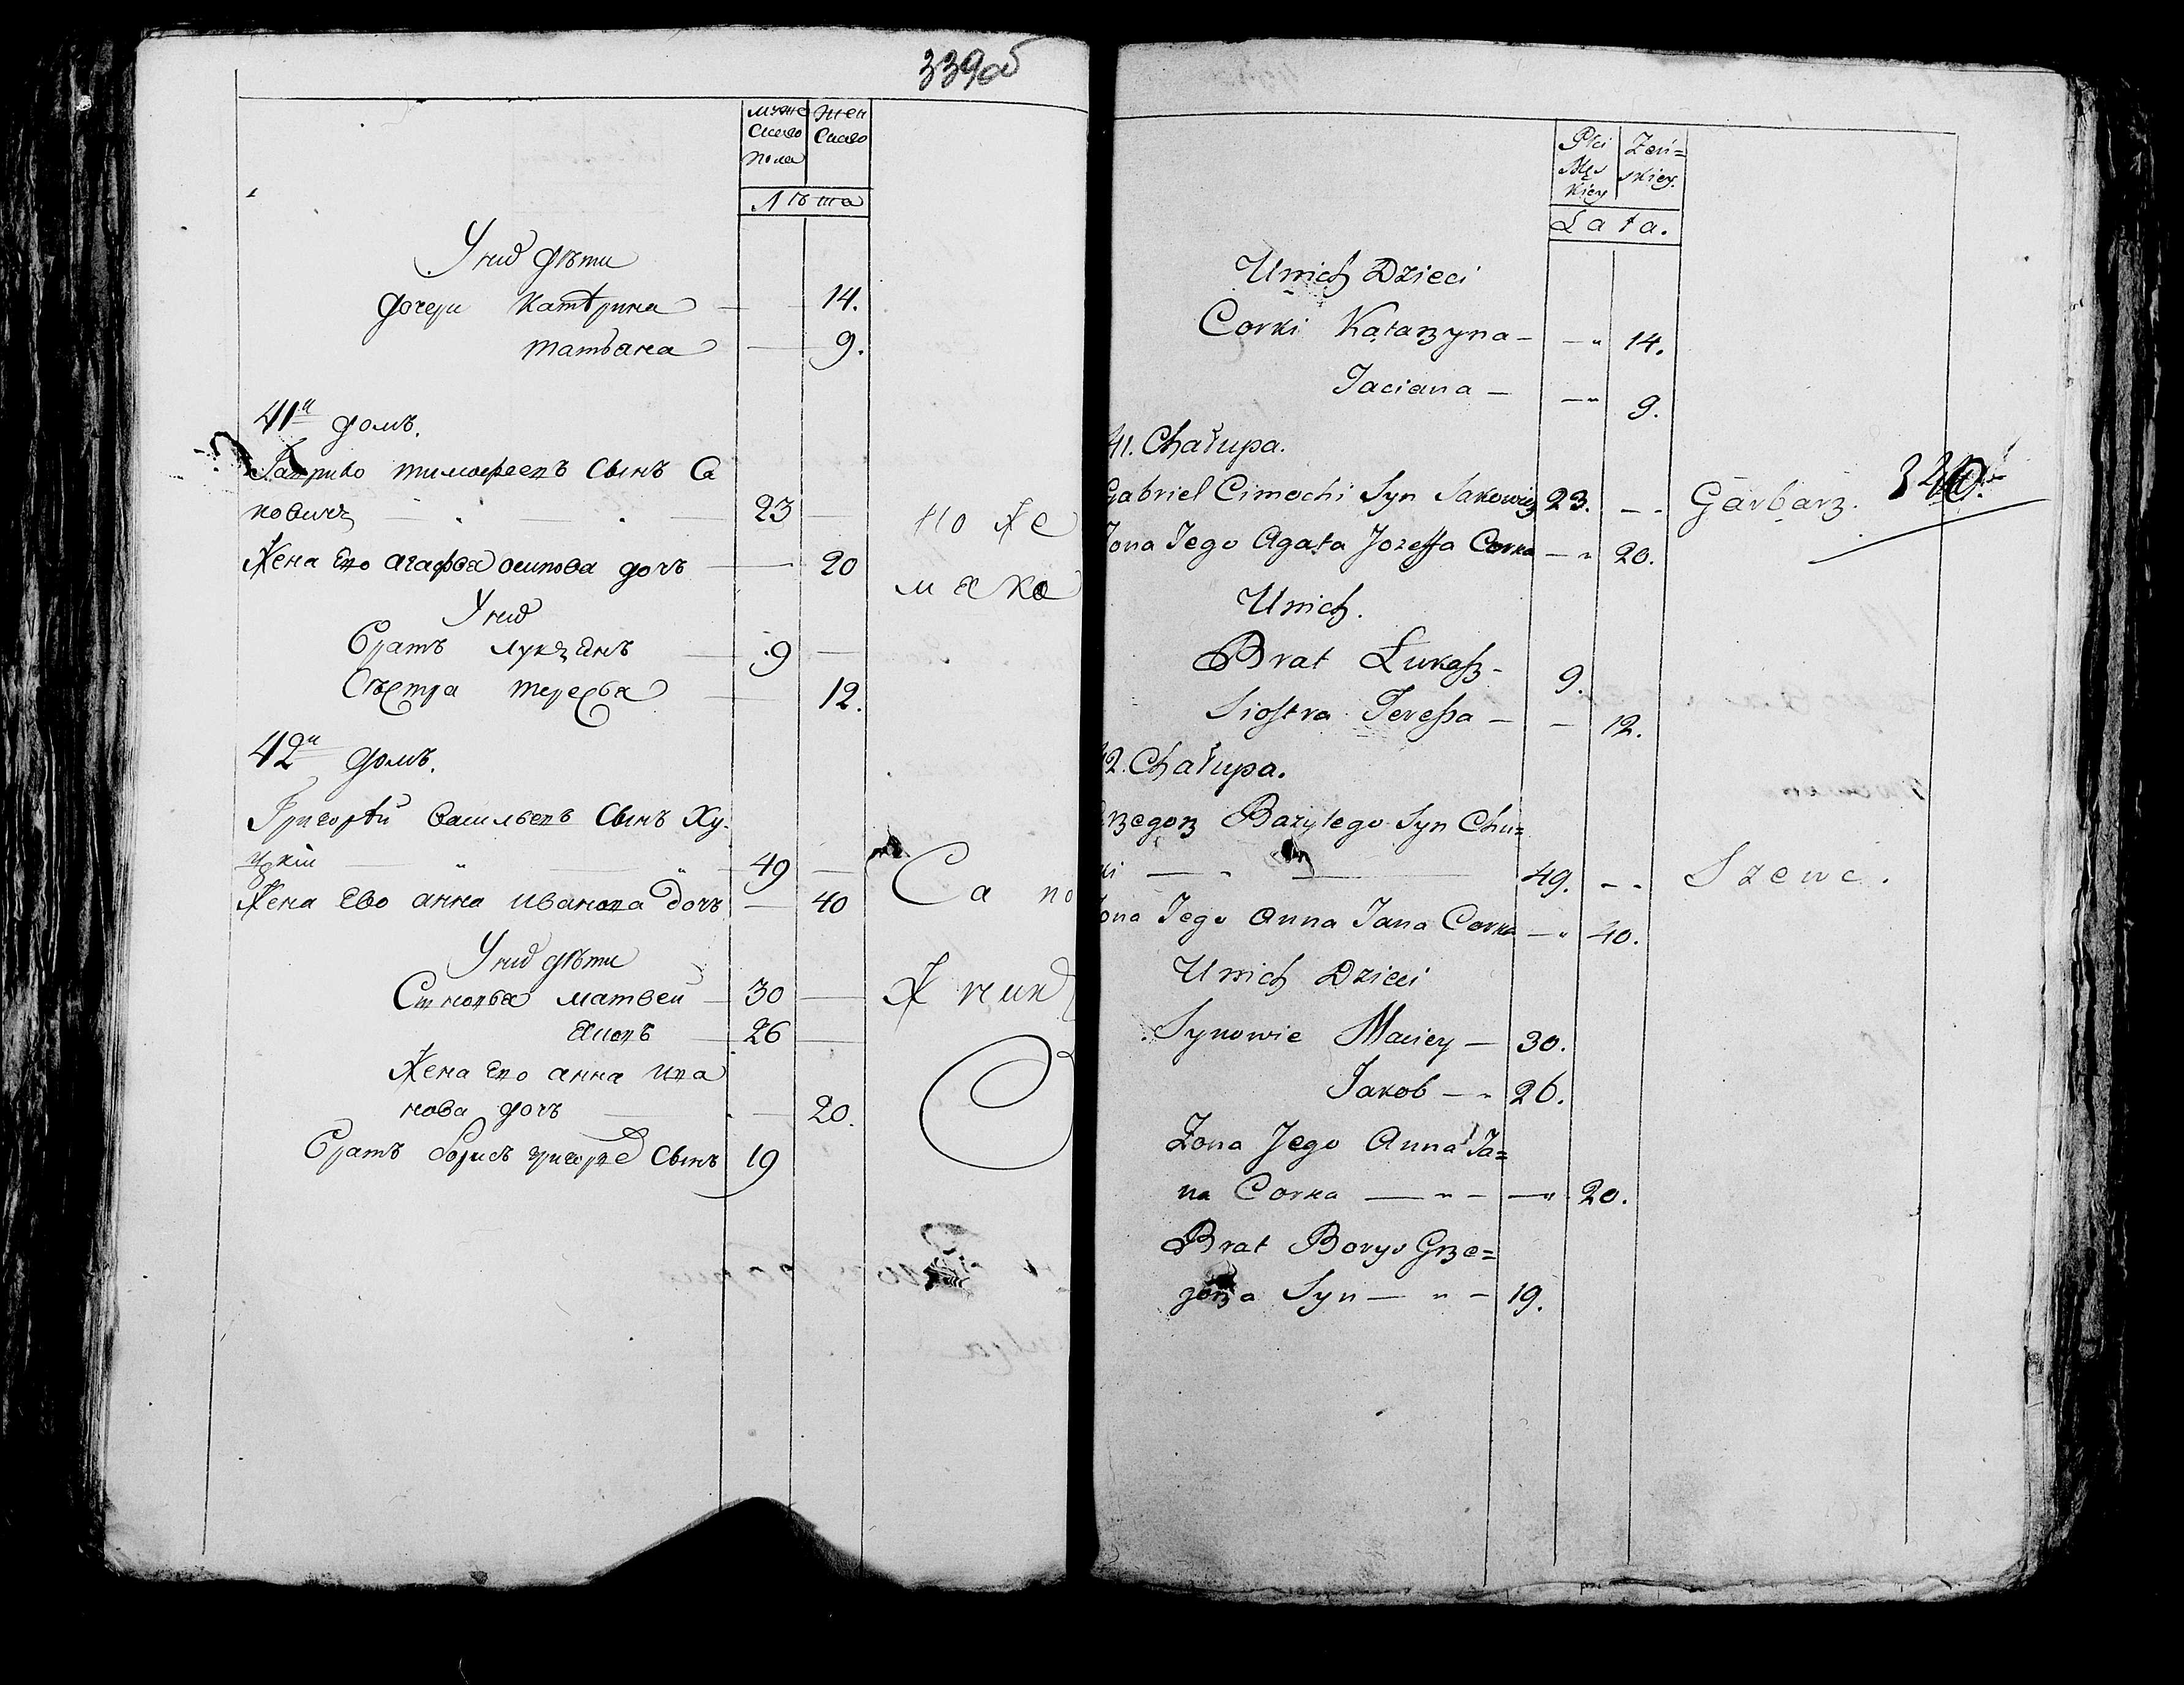 339об
муже Жен
скаго скаго
пола
Лѣта
У них дѣти
дочери Катѣрина — 14.
татьана — 9.
41й домъ.
Гаврило тимофеевъ Сынъ Са
ковичъ — 23 —
Жена Его агафьа осипова дочь — 20
У них
Братъ лукьанъ — 9 —
Сѣстра тересьа — 12.
42й домъ.
Григорѣй васильевъ Сынъ Ху
цкiй — 49 —
Жена Ево анна иванова дочь — 40
У них дѣти
Сыновьа матвей — 30 —
Аковъ — 26 —
Жена Ево анна ива
нова дочь — 20.
Братъ борисъ григорье Сынъ 19
коже
мака
Сапо
жник
Płci Zeń=
Męs skiey.
kiey
Lata.
Unich Dzieci
Corki Katarzyna — 14.
Taciana — 9.
41. Chałupa.
Gabriel Cimochi Syn Sakowicz 23. — Garbarz. 340.
Zona Jego Agata Jozeffa Corka — 20.
Unich.
Brat Łukasz — 9.
Siostra Teressa — 12.
42. Chałupa.
rzegorz Bazylego Syn Chu=
ki — 49. — Szewc.
Zona Jego Anna Jana Corka — 40.
Unich Dzieci
Synowie Maciey — 30.
Jakob — 26.
Zona Jego Anna Ja=
na Corka — 20.
Brat Borys Grze=
gorza Syn — 19.